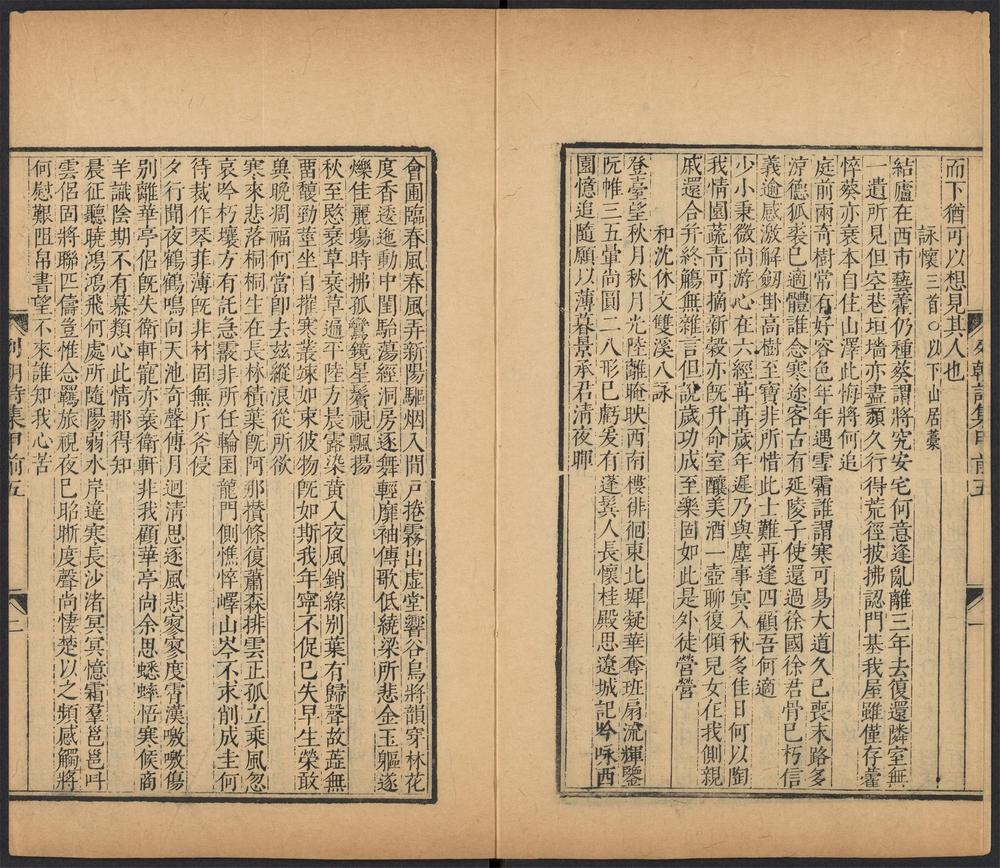 而下猶可以想見其人也
詠懷三首○以下山居藁
結廬在西市市藝藿仍種葵謂將究安宅何意逢亂離三年去復還隣室無
一遺所見但空巷垣墻亦盡頹久行得荒徑披拂認門基我屋雖僅存藿
悴葵亦衰本自住山澤此悔將何追
庭前兩奇樹常有好容色年年遇雪霜誰謂寒可易大道久已喪末路多
涼德狐裘已適體誰念寒途客古有延陵子使還過徐國徐君骨已朽信
義逾感激解劒掛高樹至寶非所惜此士難再逢四顧吾何適
少小秉微尚游心在六經苒苒歲年遲乃與塵事冥入秋多佳日何以陶
我情園蔬青可摘新穀亦旣升命室釀美酒一壺聊復傾兒女在我側親
戚還合并終觴無雜言但說歲功成至樂固如此是外徒營營
和沈休文雙溪八詠
登臺望秋月秋月光陸離晻映西南樓徘徊東北墀凝華奪班扇流輝鑒
阮帷三五暈尚圓二八形已虧爰有蓬鬂人長懷桂殿思遼城記吟咏西
園憶追隨願以薄暮景承君清夜暉
會圃臨春風春風弄新陽驅烟入閒戸捲霧出虛堂響谷鳥將韻穿林花
度香逶迤動中閨駘蕩經洞房逐舞輕靡袖傳歌低繞梁所悲金玉軀遂
爍佳麗塲時拂孤鸞鏡星鬢視飄揚
秋至愍衰草衰草遍平陸方晨露染黃入夜風銷綠别葉有歸聲故葢無
畱馥勁莖坐自摧寒叢竦如束彼物旣如斯我年寧不促已失早生榮敢
與晚凋福何當卽去玆縱浪從所欲
寒來悲落桐桐生在長林積葉旣阿那攢條復蕭森排雲正孤立乘風忽
哀吟朽壤方有託急霰非所任輪囷龍門側憔悴嶧山岑不求削成圭何
待裁作琴菲薄旣非材固無斤斧侵
夕行聞夜鶴鶴鳴向天池奇聲傳月迥清思逐風悲寥寥度霄漢噭噭傷
别離華亭侶旣失衛軒寵亦衰衛軒非我顧華亭尚余思蟋蟀悟寒候商
羊識陰期不有慕類心此情那得知
晨征聽曉鴻鴻飛何處所隨陽弱水岸違寒長沙渚冥冥憶霜羣邕邕呌
雲侶固將聯匹儔豈惟念羈旅視夜已昭晰度聲尚悽楚以之頻感觸將
何慰艱阻帛書望不來誰知我心苦
列朝詩集甲前五
二